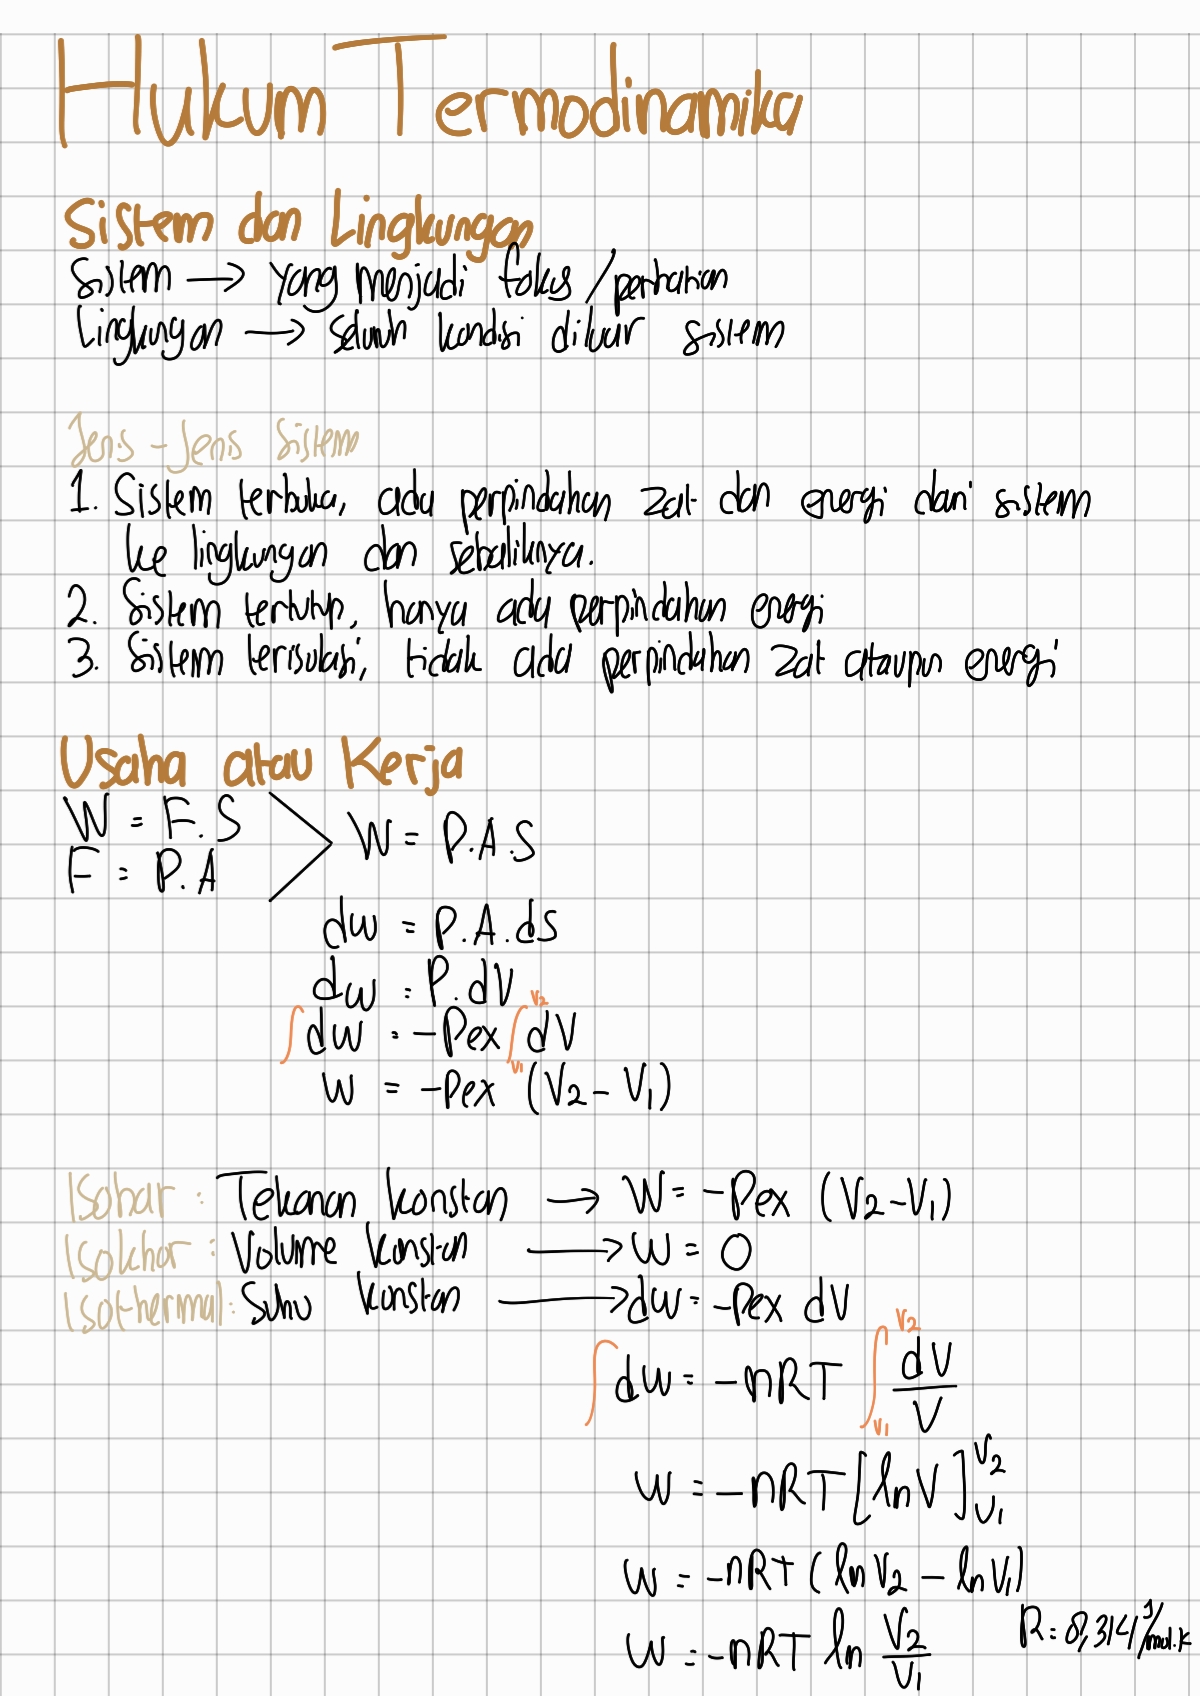 Hukum Termodinamika
Sistem dan Lingkungan
Sistem → yang menjadi fokus / perhatian
Lingkungan → seluruh kondisi diluar sistem
Jenis - Jenis Sistem
1. Sistem terbuka, ada perpindahan zat dan energi dari sistem
ke lingkungan dan sebaliknya.
2. Sistem tertutup, hanya ada perpindahan energi
3. Sistem terisolasi, tidak ada perpindahan zat ataupun energi
Usaha atau Kerja
W = F.S
F = P.A
W = P.A.S
dw = P.A.ds
dw = P.dV
∫dw = -Pex ∫_{V1}^{V2} dV
W = -Pex (V2 - V1)
Isobar : Tekanan konstan → W = -Pex (V2 - V1)
Isokhor : Volume konstan → W = 0
Isothermal : Suhu konstan → dw = -Pex dV
∫dw = -nRT ∫_{V1}^{V2} dV/V
W = -nRT [ln V]_{V1}^{V2}
W = -nRT (ln V2 - ln V1)
W = -nRT ln V2/V1
R = 8,314 J/mol.K